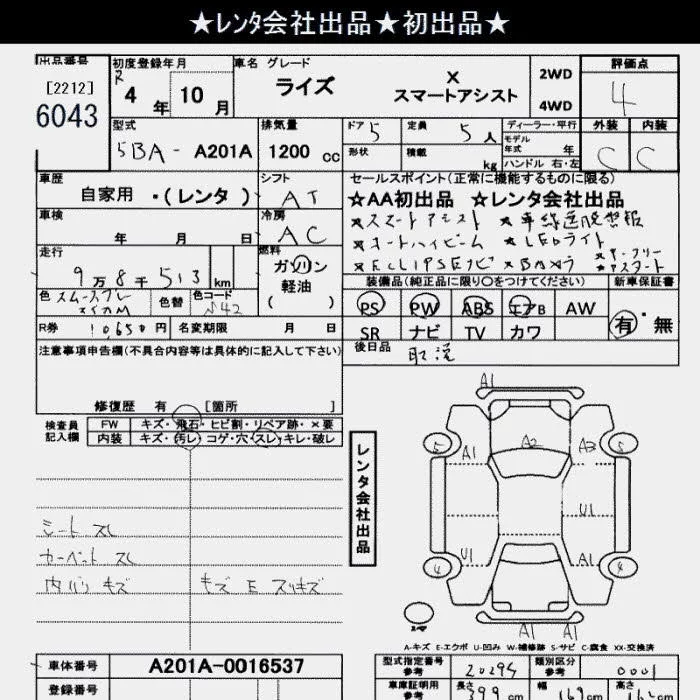 ★レンタ会社出品★初出品★
出品番号 初度登録年月 車名 グレード 評価点
[2212]
6043
R 4 年 10 月
ライズ
X
スマートアシスト
2WD
4WD
4
型式 排気量 ドア 5 定員 5人 ディーラー・平行 外装 内装
5BA-A201A 1200 cc
形状 積載 kg モデル年式 年 ハンドル 右・左 C C
車歴 シフト セールスポイント(正常に機能するものに限る)
自家用 ・(レンタ) AT
☆AA初出品 ☆レンタ会社出品
車検 冷房
年 月 日 AC
★スマートアシスト
★オートハイビーム ★LEDライト
走行 燃料
9万8千513 km ガソリン
軽油
( )
装備品(純正品に限り〇をつけてください) 新車保証書
色 色替 色コード
PS PW ABS エアB AW 有・無
SR ナビ TV カワ
R券 10,650 円 名変期限 月 日
後日品 取説
注意事項申告欄(不具合内容等は具体的に記入して下さい)
修復歴 有 [箇所 ]
検査員記入欄 FW キズ・飛石・ヒビ割・リペア跡・×要
内装 キズ・汚レ・コゲ・穴・スレ・キレ・破レ
レンタ会社出品
A1
A2 A3
5 A1 5
U1
U1 A1
4 4
A1
シート スレ
カーペット スレ
内バリ キズ キズ E スリキズ
A-キズ E-エクボ U-凹み W-補修跡 S-サビ C-腐食 XX-交換済
車体番号 A201A-0016537
型式指定番号 参考 20294 類別区分 参考 0001
登録番号
車庫証明用 参考 長さ 399 cm 幅 169 cm 高さ